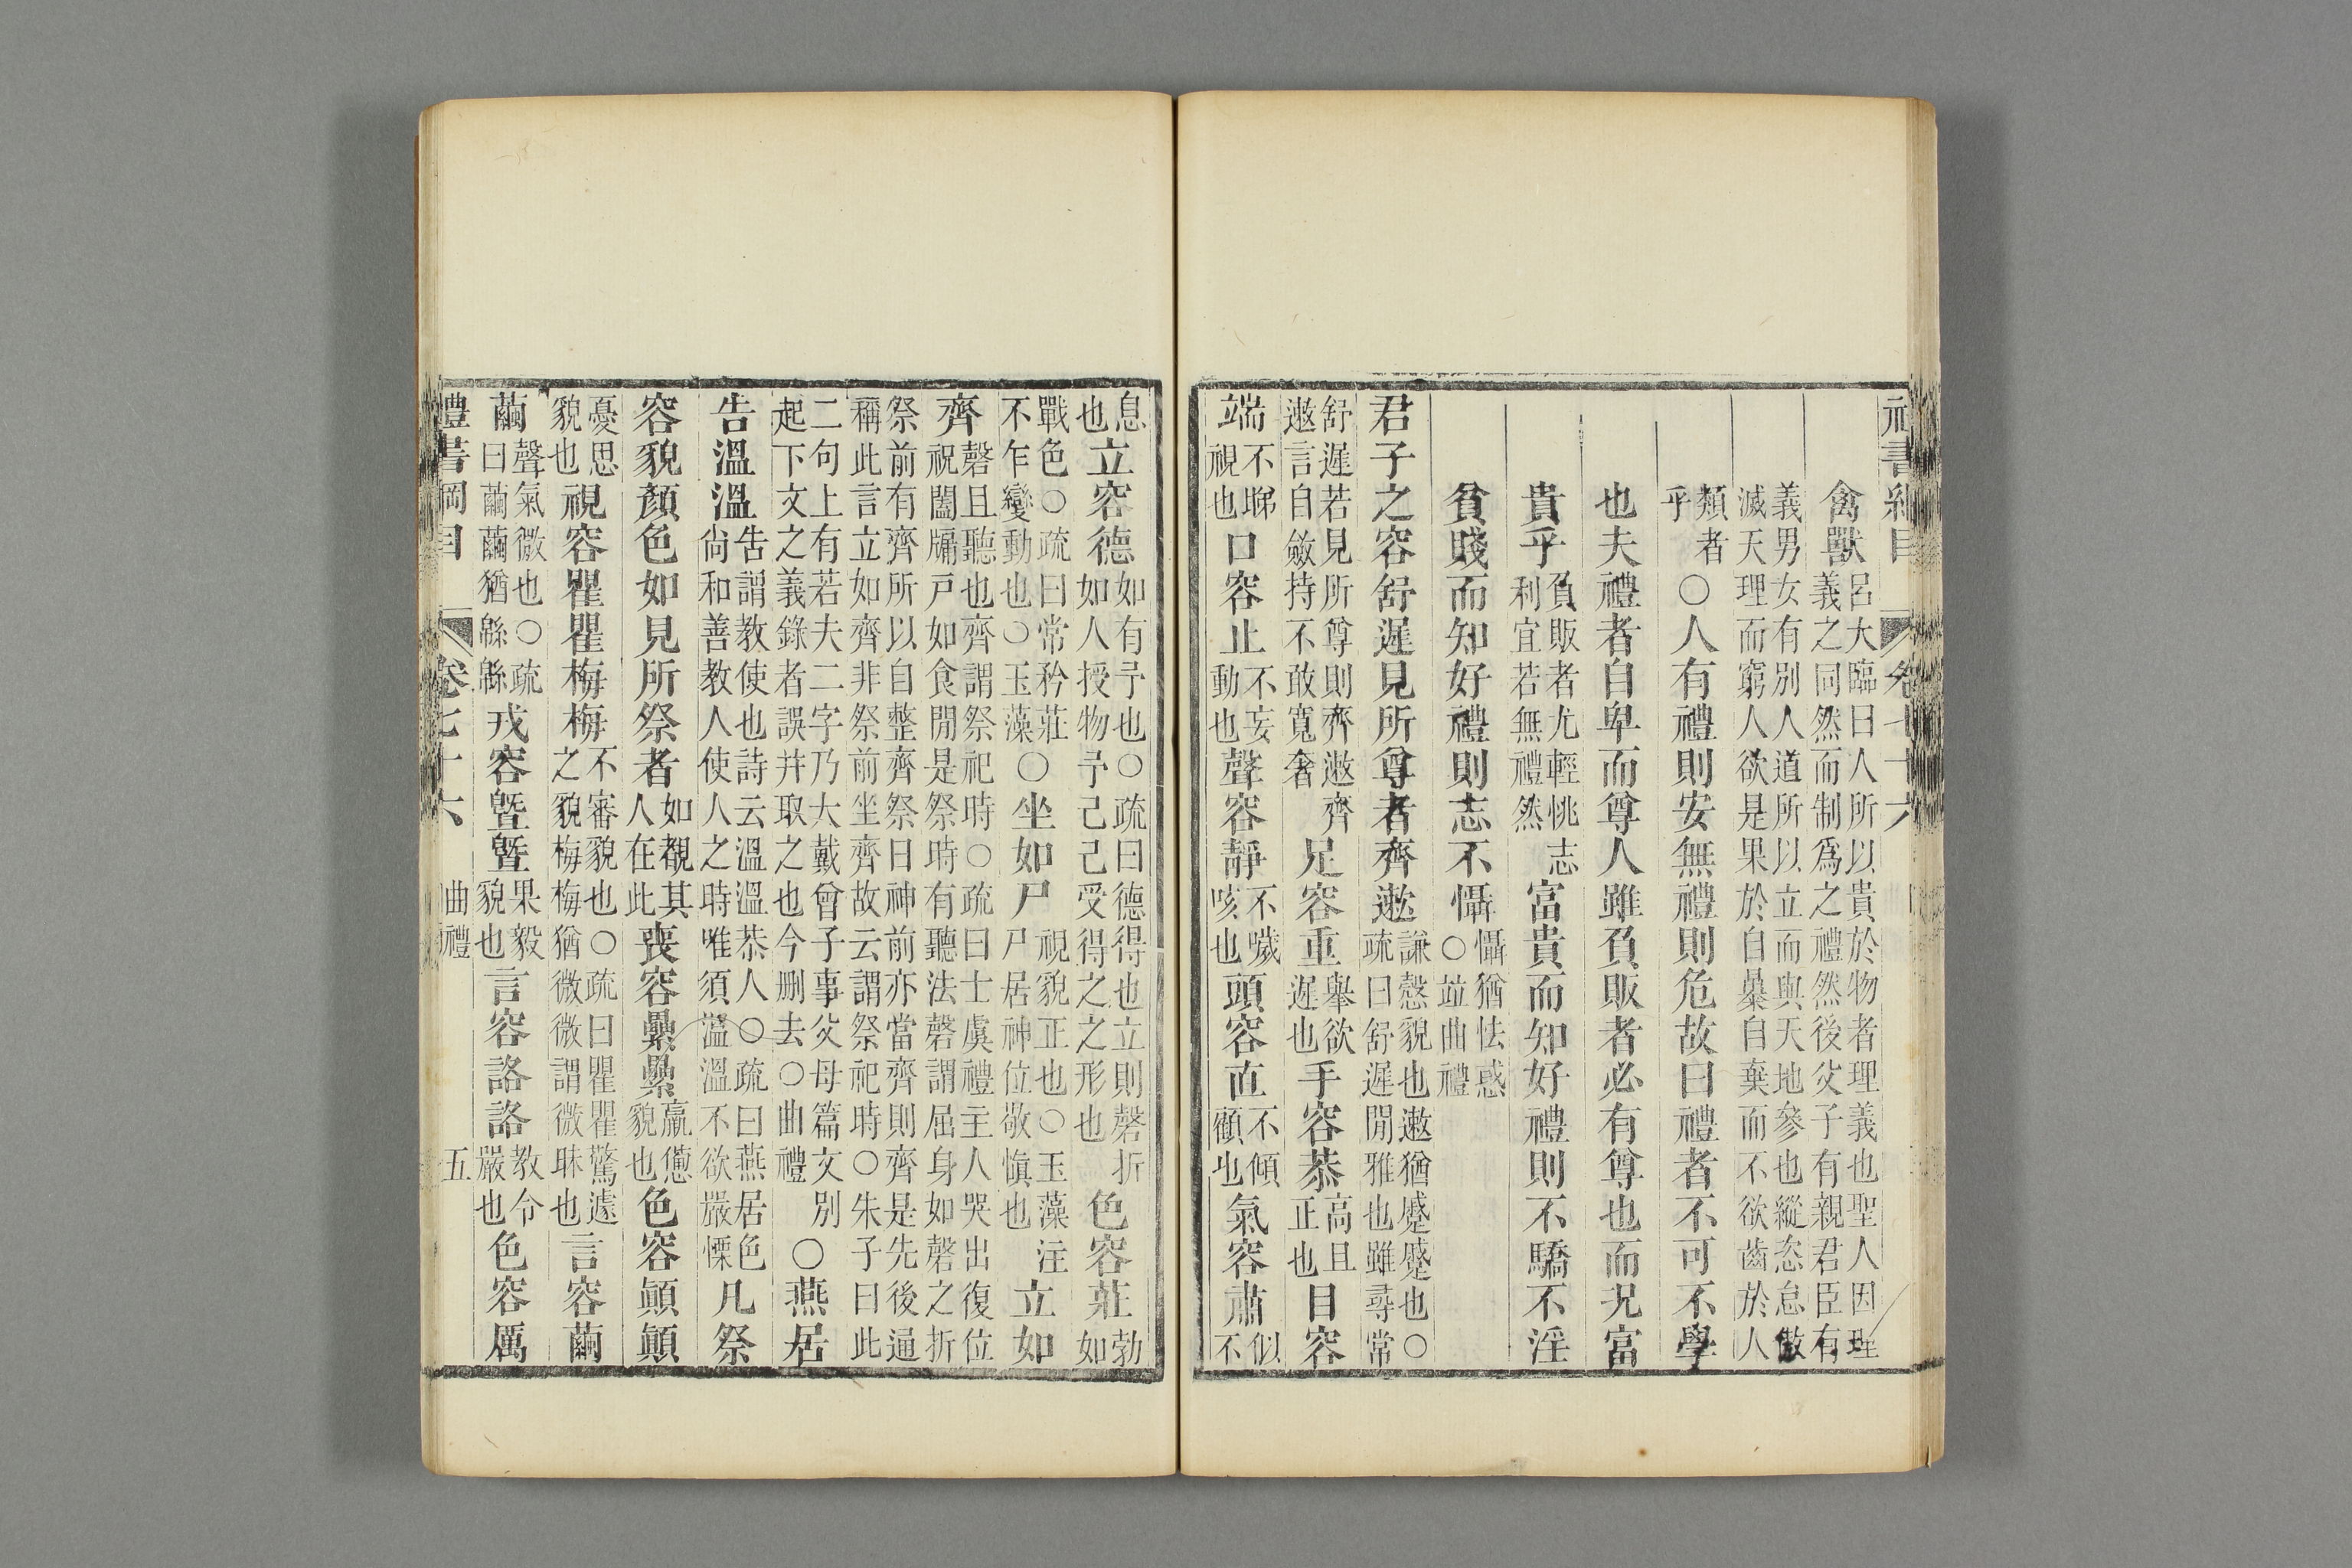 禽獸呂大臨曰人所以貴於物者理義也聖人因理義之同然而制爲之禮然後父子有親君臣有
義男女有別人道所以立而與天地參也縱恣怠傲滅天理而窮人欲是果於自暴自棄而不欲齒於人
類者乎○人有禮則安無禮則危故曰禮者不可不學
也夫禮者自卑而尊人雖負販者必有尊也而況富
貴乎負販者尤輕恌志利宜若無禮然富貴而知好禮則不驕不淫
貧賤而知好禮則志不懾懾猶怯惑○竝曲禮
君子之容舒遲見所尊者齊遬謙慤貌也遬猶蹙蹙也○疏曰舒遲閒雅也雖尋常
舒遲若見所尊則齊遬齊遬言自斂持不敢寬奢足容重舉欲遲也手容恭高且正也目容
端不睇視也口容止不妄動也聲容靜不噦咳也頭容直不傾顧也氣容肅似不
息也立容德如有予也○疏曰德得也立則磬折如人授物予己己受得之之形也色容莊勃如
戰色○疏曰常矜莊不乍變動也○玉藻○坐如尸視貌正也○玉藻注尸居神位敬愼也立如
齊磬且聽也齊謂祭祀時○疏曰士虞禮主人哭出復位祝闔牖戶如食閒是祭時有聽法磬謂屈身如磬之折
祭前有齊所以自整齊祭日神前亦當齊則齊是先後通稱此言立如齊非祭前坐齊故云謂祭祀時○朱子曰此
二句上有若夫二字乃大戴曾子事父母篇文別起下文之義錄者誤幷取之也今刪去○曲禮○燕居
告溫溫告謂教使也詩云溫溫恭人○疏曰燕居色尙和善教人使人之時唯須溫溫不欲嚴慄凡祭
容貌顏色如見所祭者如覩其人在此喪容纍纍羸憊貌也色容顚顚
憂思貌也視容瞿瞿梅梅不審貌也○疏曰瞿瞿驚遽之貌梅梅猶微微謂微昧也言容繭
繭聲氣微也○疏曰繭繭猶緜緜戎容曁曁果毅貌也言容詻詻教令嚴也色容厲
禮書綱目 卷七十六 曲禮 五